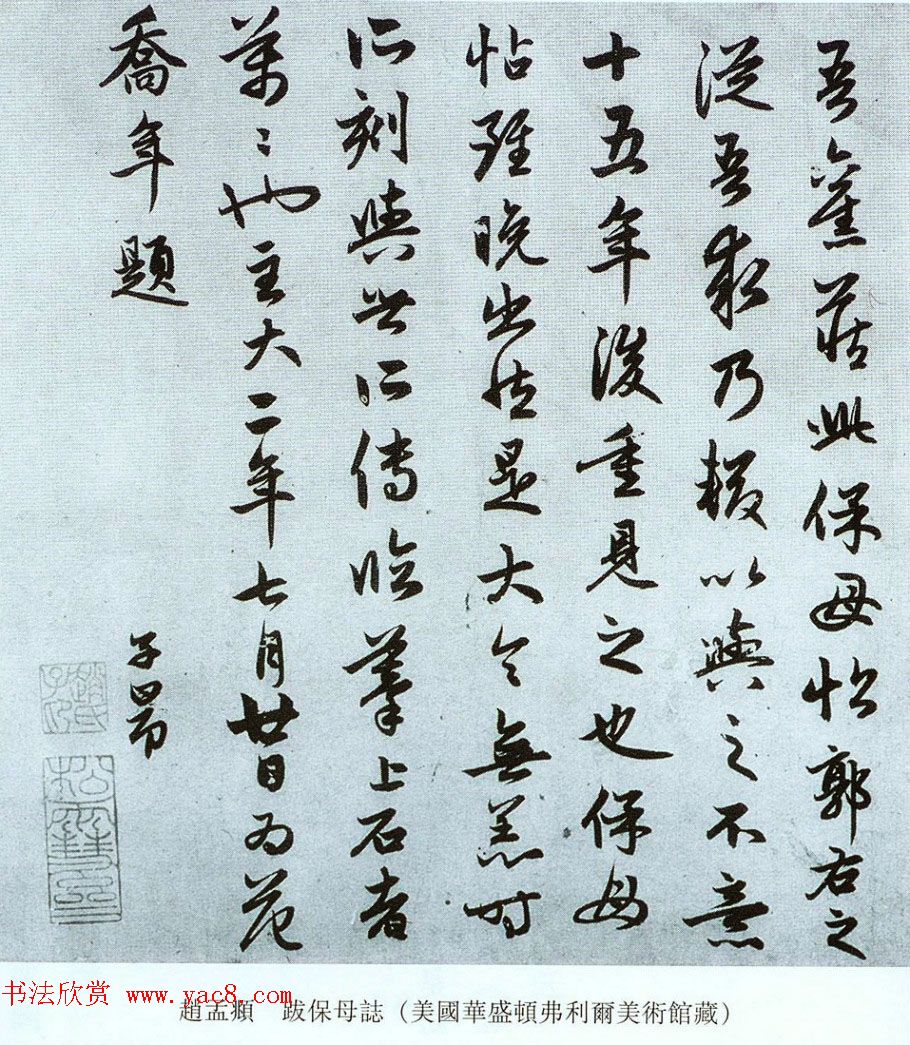 吾舊藏此保母帖郭右之
從吾求乃輟以與之不意
十五年後重見之也保母
帖雖晚出然是大令無恙時
所刻與世所傳臨摹上石者
萬〻也至大二年七月廿日為范
喬年題
子昂
趙氏子昂
松雪齋
趙孟頫 跋保母誌（美國華盛頓弗利爾美術館藏）
书法欣赏 www.yac8.com